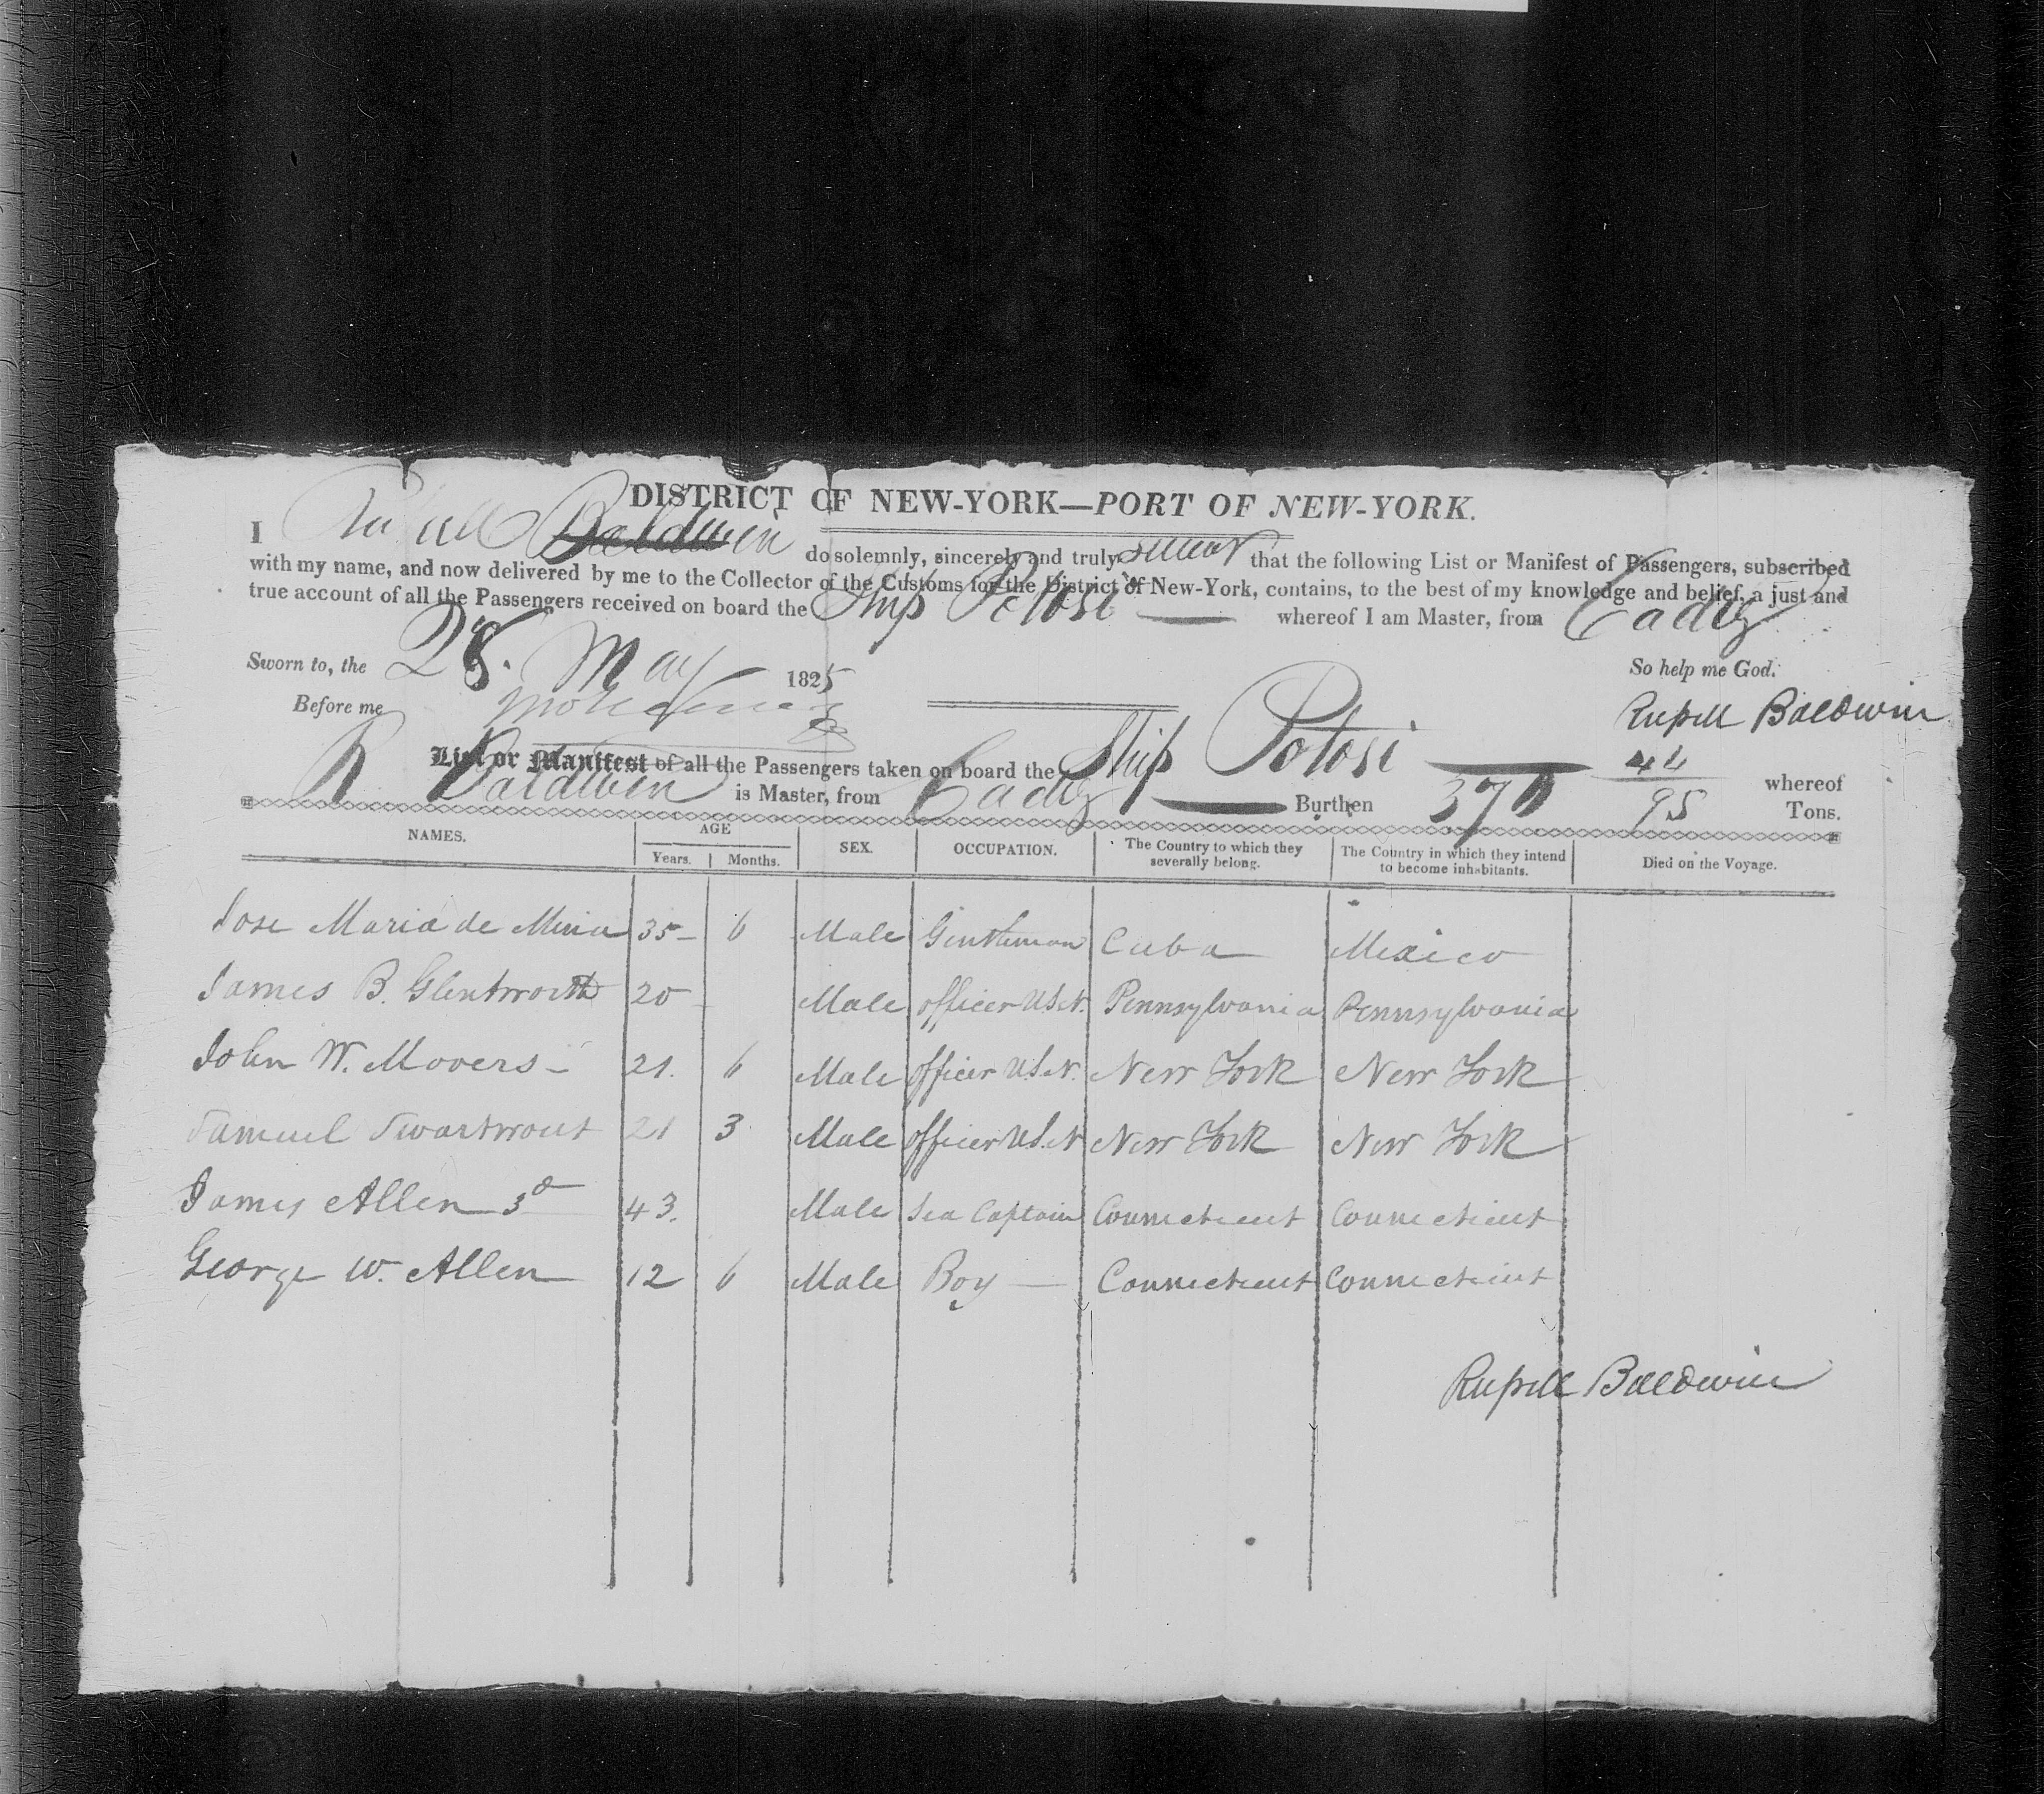 DISTRICT OF NEW-YORK—PORT OF NEW-YORK.
I Russell Baldwin do solemnly, sincerely and truly swear that the following List or Manifest of Passengers, subscribed
with my name, and now delivered by me to the Collector of the Customs for the District of New-York, contains, to the best of my knowledge and belief, a just and
true account of all the Passengers received on board the Ship Potosi whereof I am Master, from Cadiz
Sworn to, the 28. May 1825 So help me God.
Before me Russell Baldwin
List or Manifest of all the Passengers taken on board the Ship Potosi whereof
R Baldwin is Master, from Cadiz Burthen 95 Tons.
NAMES. AGE Years. Months. SEX. OCCUPATION. The Country to which they severally belong. The Country in which they intend to become inhabitants. Died on the Voyage.
Jose Maria de Mina 35 6 Male Gentleman Cuba Mexico
James B. Glentworth 20 Male officer U.S.N. Pennsylvania Pennsylvania
John W. Moores 21. 6 Male officer U.S.N. New York New York
Samuel Swartwout 21 3 Male officer U.S.N New York New York
James Allen 3d 43. Male Sea Captain Connecticut Connecticut
George W. Allen 12 6 Male Boy Connecticut Connecticut
Russell Baldwin